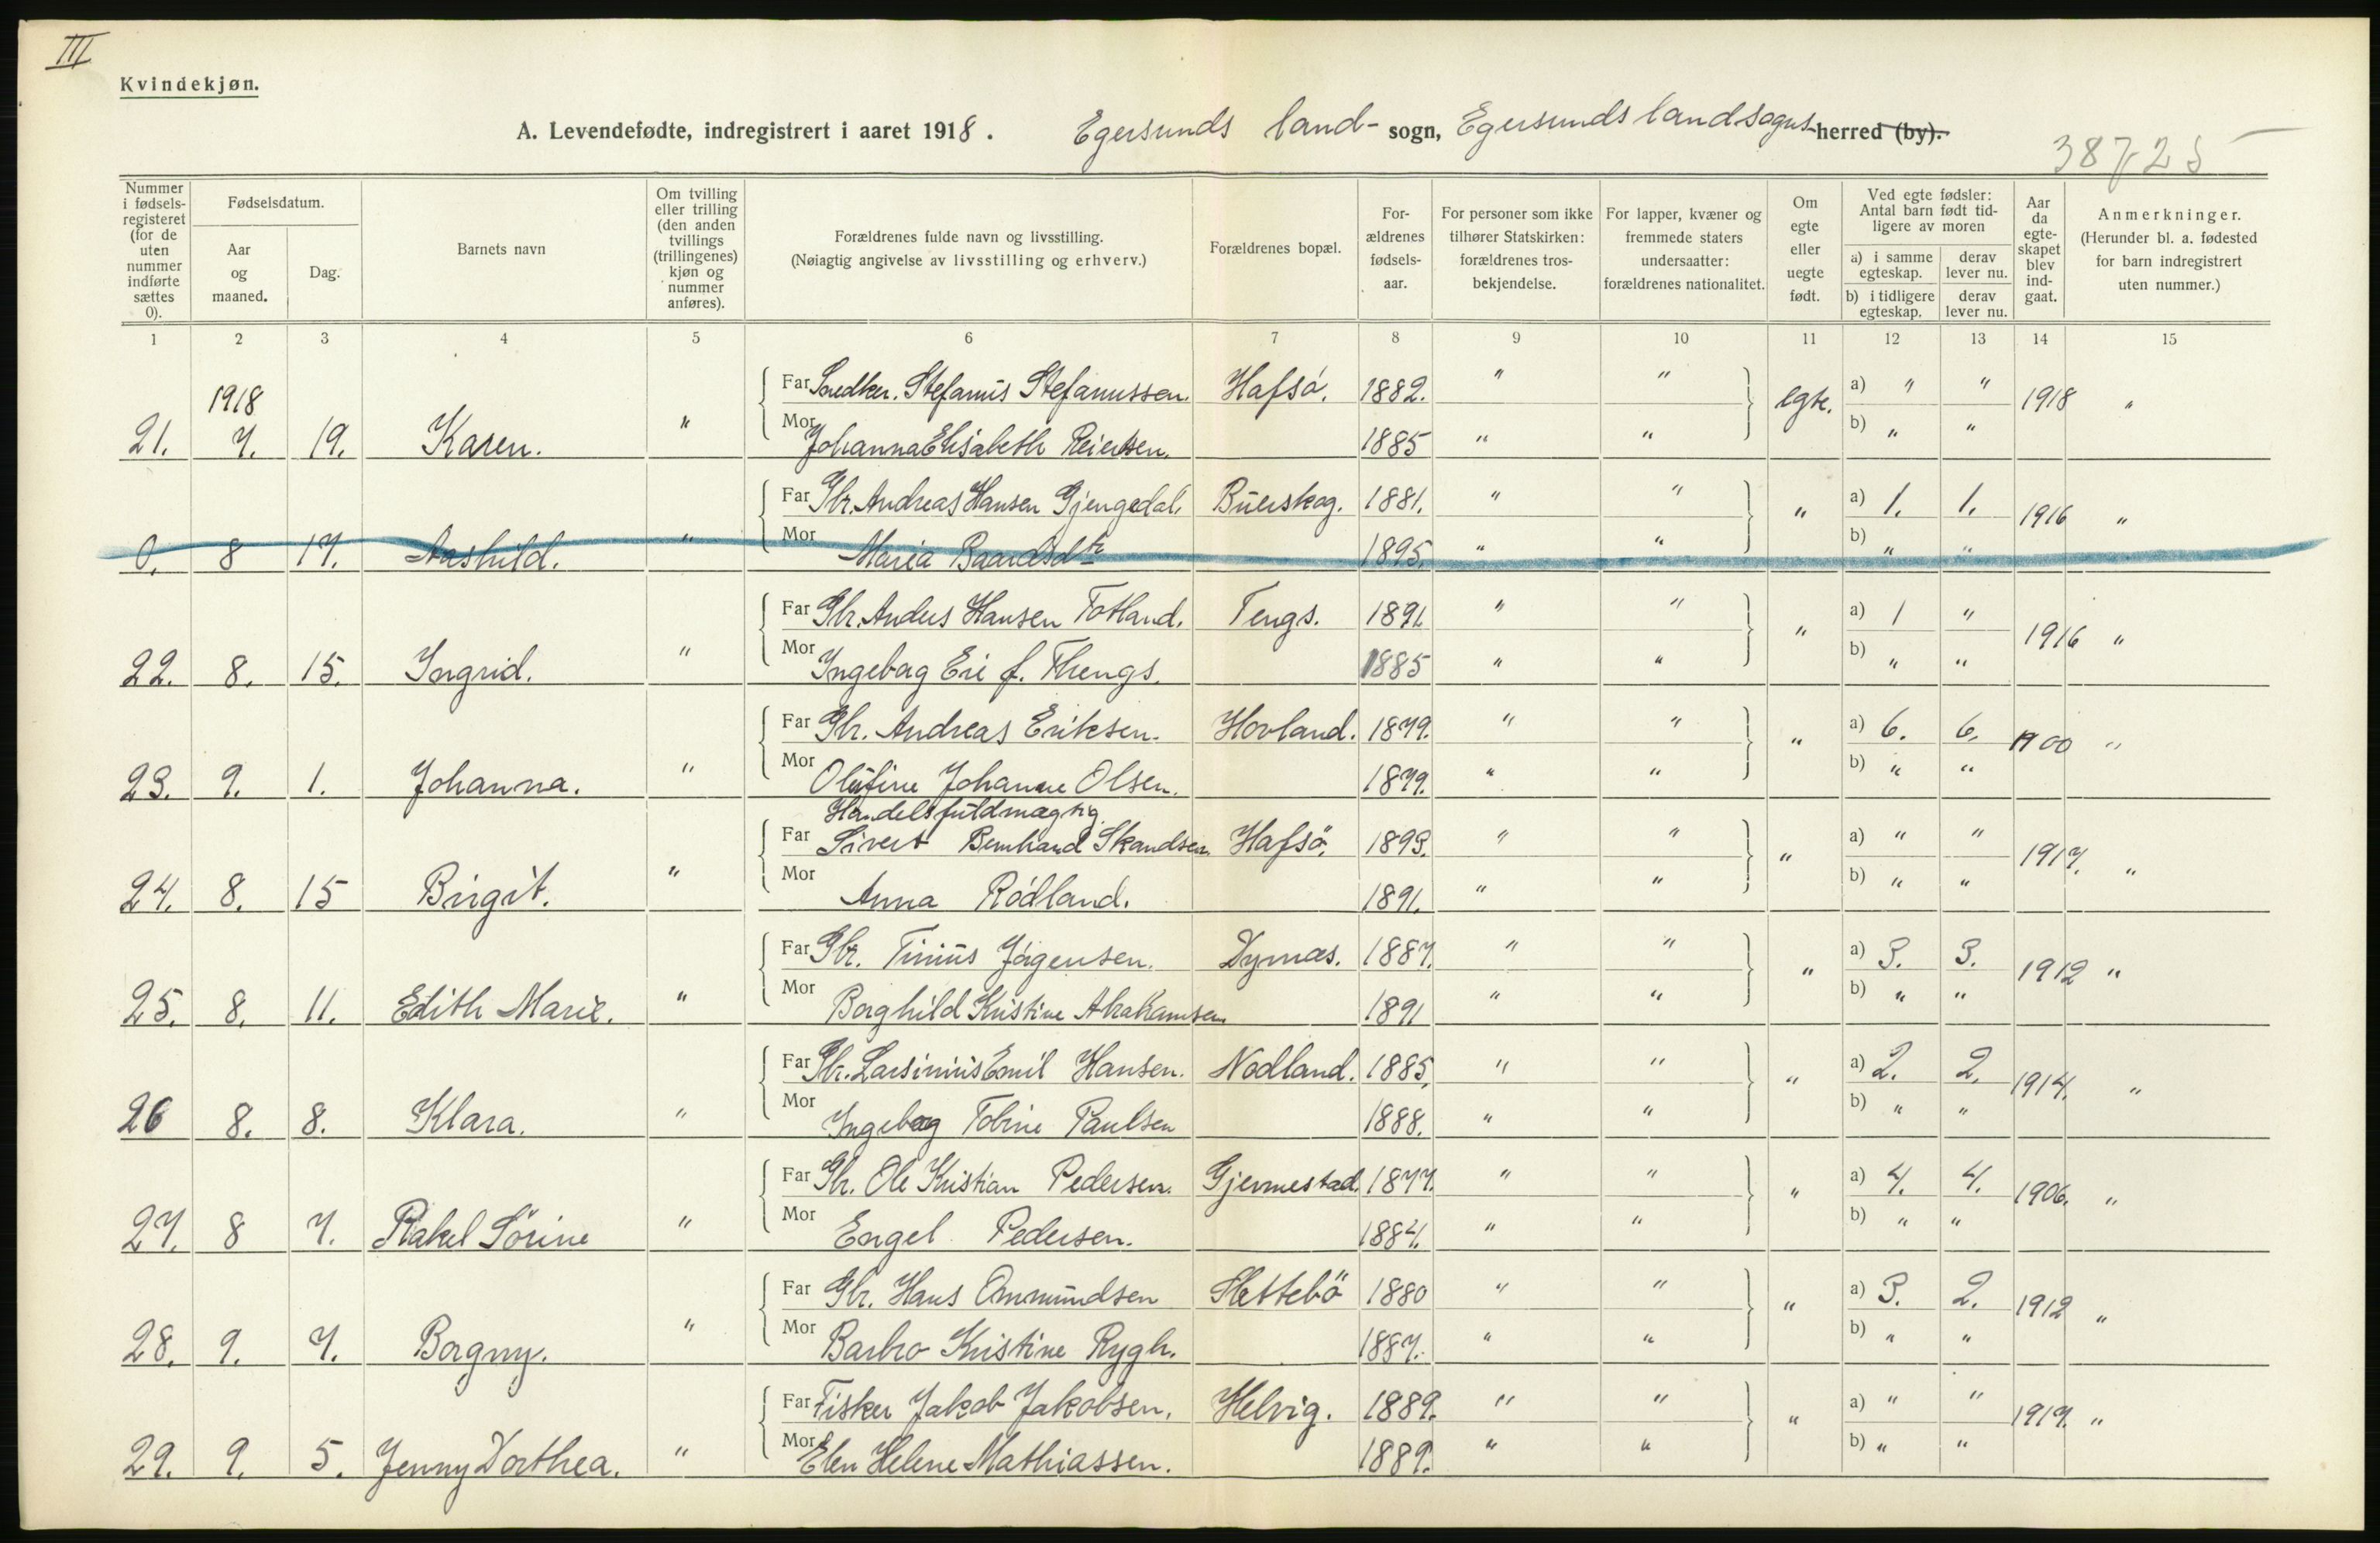 III
Kvindekjøn.
A. Levendefødte, indregistrert i aaret 1918. Egersunds land- sogn, Egersunds landsogns herred (by).
38725
Nummer i fødsels-registeret (for de uten nummer indførte sættes 0). Fødselsdatum. Aar og maaned. Dag. Barnets navn Om tvilling eller trilling (den anden tvillings (trillingenes) kjøn og nummer anføres). Forældrenes fulde navn og livsstilling. (Nøiagtig angivelse av livsstilling og erhverv.) Forældrenes bopæl. For-ældrenes fødsels-aar. For personer som ikke tilhører Statskirken: forældrenes tros-bekjendelse. For lapper, kvæner og fremmede staters undersaatter: forældrenes nationalitet. Om egte eller uegte født. Ved egte fødsler: Antal barn født tid-ligere av moren a) i samme egteskap. derav lever nu. b) i tidligere egteskap. derav lever nu. Aar da egte-skapet blev ind-gaat. Anmerkninger. (Herunder bl. a. fødested for barn indregistrert uten nummer.)
1 2 3 4 5 6 7 8 9 10 11 12 13 14 15
1918
Far Snedker. Stefanus Stefanussen. Hafsö. 1882. " " egte. a) " " 1918 "
21. 7. 19. Karen. " Mor Johanna Elisabeth Reiertsen. 1885 " " b) " "
Far Gbr. Andreas Hansen Gjengedal. Buerskog. 1881. " " " a) 1. 1. 1916 "
0. 8 17. Aashild. " Mor Maria Baardsdtr 1895. " " b) " "
Far Gbr. Anders Hansen Totland. Tengs. 1891. " " " a) 1 " 1916 "
22. 8. 15. Ingrid. " Mor Ingeborg Eie f. Thengs. 1885 " " b) " "
Far Gbr. Andreas Eriksen. Hovland. 1879. " " " a) 6. 6. 1900 "
23. 9. 1. Johanna. " Mor Olufine Johanne Olsen. 1879. " " b) " "
Handelsfuldmægtig
Far Sivert Bernhard Skandsen. Hafsö. 1893. " " " a) " " 1917. "
24. 8. 15 Birgit. " Mor Anna Rödland. 1891. " " b) " "
Far Gbr. Tinius Jörgensen. Dyrnæs. 1887. " " " a) 3. 3. 1912 "
25. 8. 11. Edith Marie. " Mor Borghild Kristine Abrahamsen. 1891 " " b) " "
Far Gbr. Larsinius Emil Hansen. Nodland. 1885. " " " a) 2. 2. 1914. "
26 8. 8. Klara. " Mor Ingeborg Tobine Paulsen 1888. " " b) " "
Far Gbr. Ole Kristian Pedersen. Gjermestad. 1877. " " " a) 4. 4. 1906. "
27. 8 7. Rakel Sörine " Mor Engel Pedersen. 1884. " " b) " "
Far Gbr. Hans Ommundsen Slettebö 1880 " " " a) 3. 2. 1912 "
28. 9. 7. Borgny. " Mor Barbro Kristine Rygh. 1887. " " b) " "
Far Fisker Jakob Jakobsen. Helvig. 1889. " " " a) " " 1917. "
29. 9. 5. Jenny Dorthea. " Mor Elen Helene Mathiassen. 1889. " " b) " "